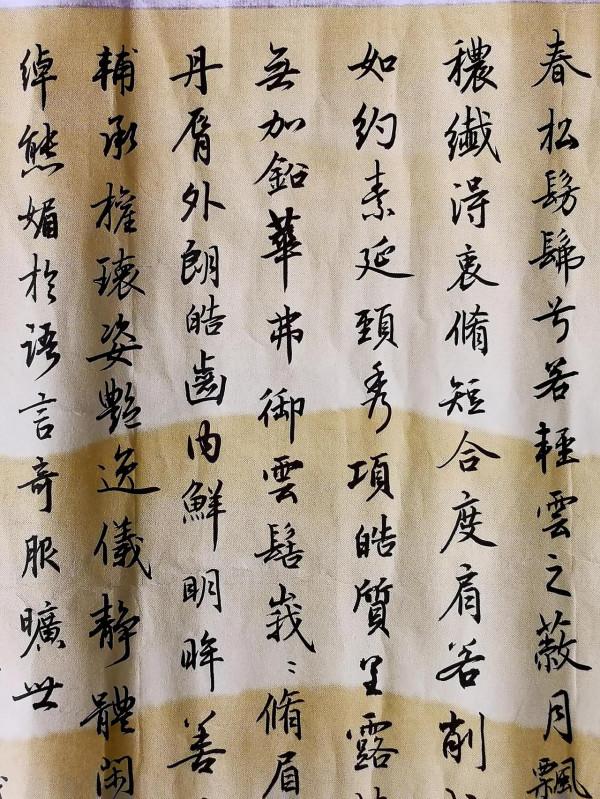 春松髣髴兮若輕雲之蔽月飄
穠纖得衷脩短合度肩若削
如約素延頸秀項皓質呈露
無加鉛華弗御雲髻峩〻脩眉
丹脣外朗皓齒内鮮明眸善
輔承權瓌姿艷逸儀靜體閑
綽態媚於語言奇服曠世